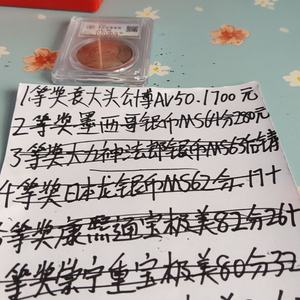 1等奖袁大头公博AV50.1700元
2等奖墨西哥银币MS64分280元
3等奖大力神法郎银币MS63
4等奖日本龙银币MS62分
等奖康熙通宝极美82分26
等奖崇宁重宝极美80分32